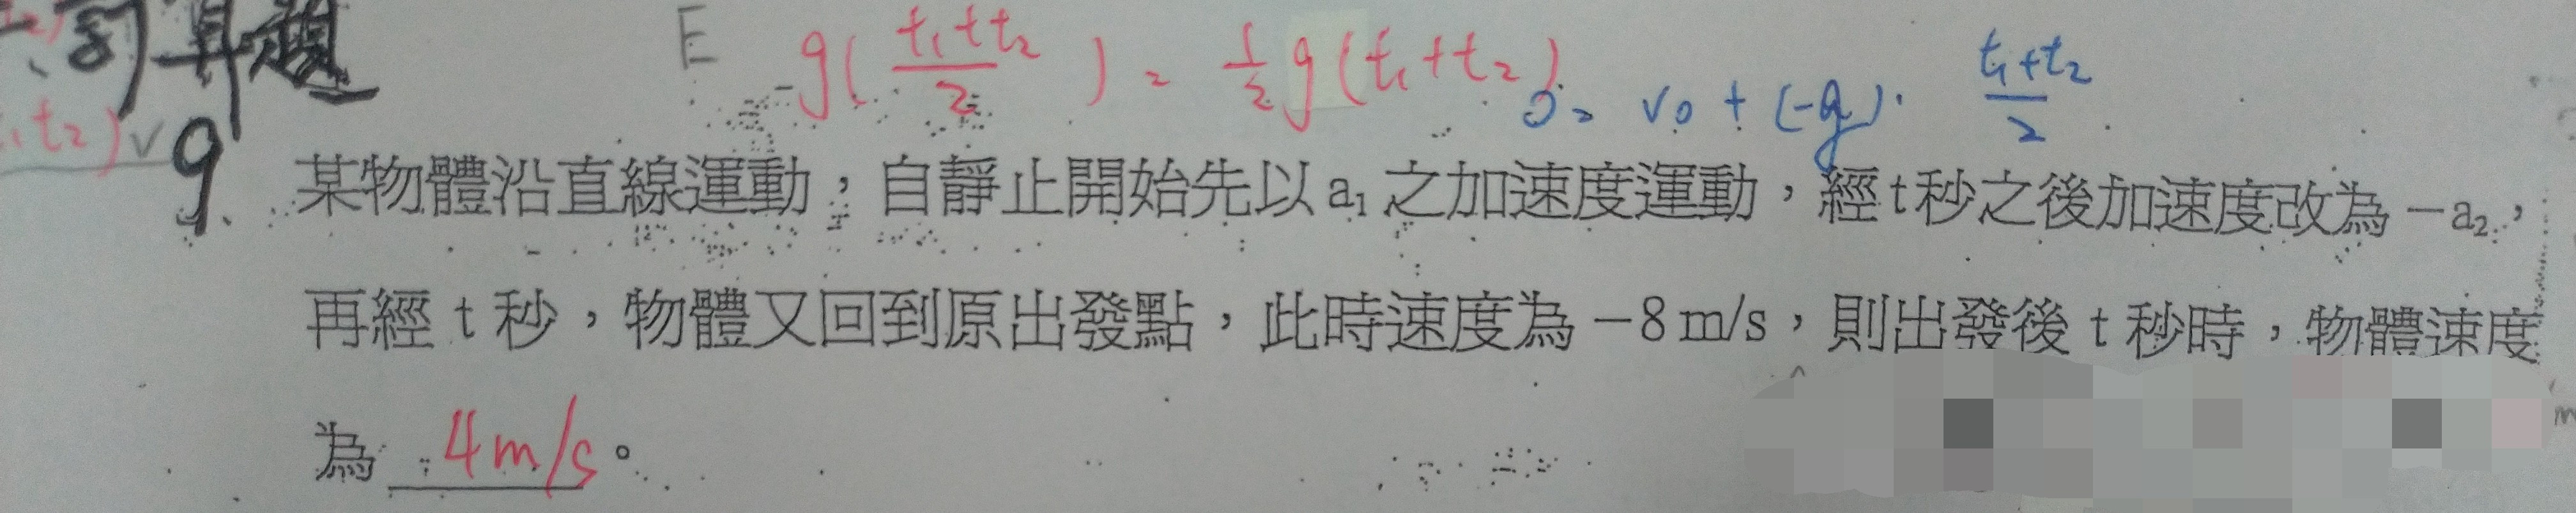 計算題
E
g(t₁+t₂/2) = ½g(t₁+t₂)
0 = v₀ + (-g)· t₁+t₂/2
₁t₂)
9 某物體沿直線運動，自靜止開始先以a₁之加速度運動，經t秒之後加速度改為－a₂，
再經 t 秒，物體又回到原出發點，此時速度為－8 m/s，則出發後 t 秒時，物體速度
為 4m/s。